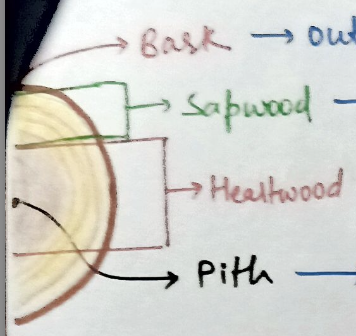 Bark → out
Sapwood
Heartwood
Pith